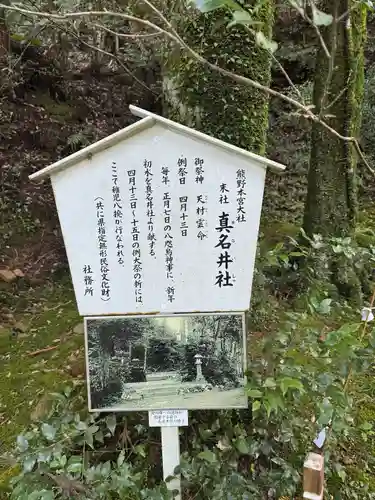 熊野本宮大社
末社 真名井社
御祭神 天村雲命
例祭日 四月十三日
毎年、正月七日の八咫烏神事に、新年
初水を真名井社より献する。
四月十三日〜十五日の例大祭の祈には、
ここで稚児八撥が行なわれる。
(共に県指定無形民俗文化財)
社務所